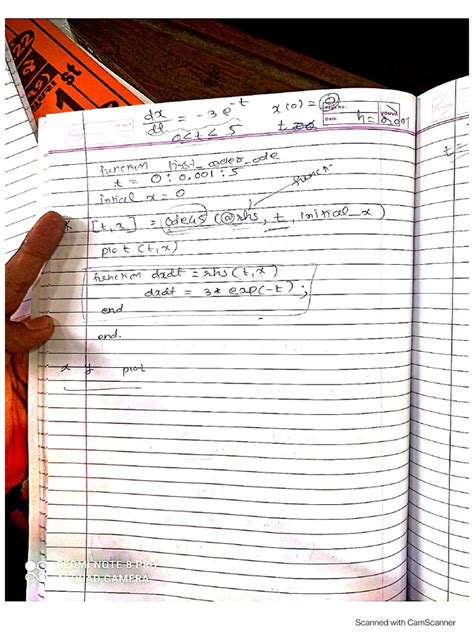 dx/dt = -3 e^-t x(0) = 0
0 < t < 5 t h = 0.001
Date
YOUVA
function first_order_ode
t = 0 : 0.001 : 5
initial x = 0
[t, x] = ode45 (@rhs, t, initial_x)
plot (t, x)
function dxdt = rhs (t, x)
dxdt = 3 * exp(-t) ;
end
end.
x y plot
REDMI NOTE 8 PRO
AI QUAD CAMERA
Scanned with CamScanner